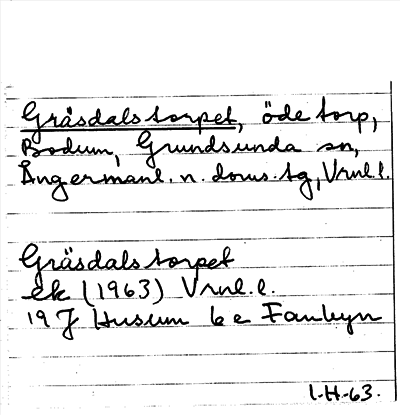 Gräsdalstorpet, öde torp,
Bodum, Grundsunda sn,
Ångermanl. n. doms. tg, Vrnl. l.
Gräsdalstorpet
ek (1963) Vrnl. l.
19 J Husum 6 e Fanbyn
L-H-63.